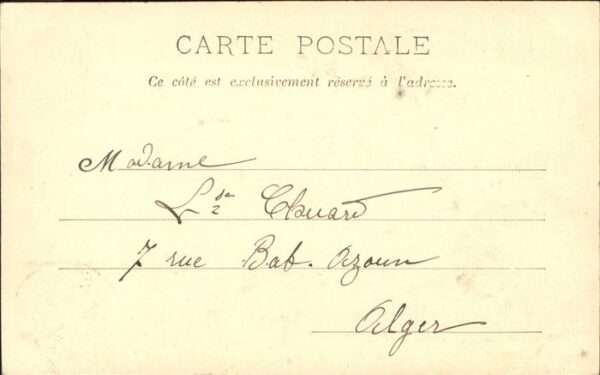 CARTE POSTALE
Ce côté est exclusivement réservé à l'adresse.
Madame
7 rue Bab-Azoun
Alger